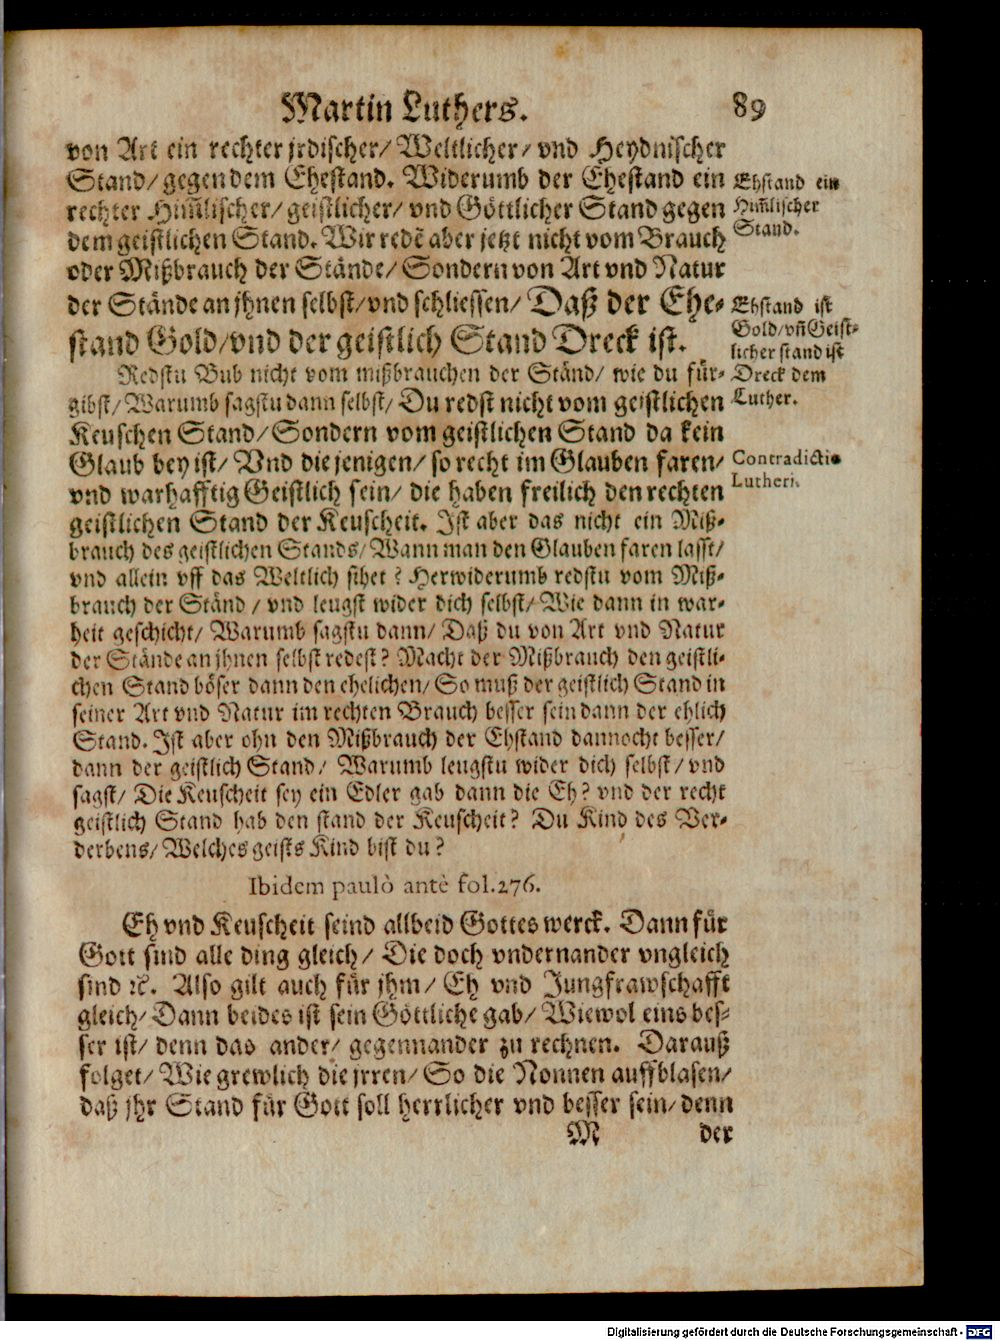 Martin Luthers. 89
von Art ein rechter jrdischer/ Weltlicher/ vnd Heydnischer
Stand/ gegen dem Ehestand. Widerumb der Ehestand ein
rechter Him̃lischer/ geistlicher/ vnd Göttlicher Stand gegen
dem geistlichen Stand. Wir redẽ aber jetzt nicht vom Brauch
oder Mißbrauch der Stände/ Sondern von Art vnd Natur
der Stände an jhnen selbst/ vnd schliessen/ Daß der Ehe-
stand Gold/ vnd der geistlich Stand Dreck ist.
Redstu Bub nicht vom mißbrauchen der Ständ/ wie du für-
gibst/ Warumb sagstu dann selbst/ Du redst nicht vom geistlichen
Keuschen Stand/ Sondern vom geistlichen Stand da kein
Glaub bey ist/ Vnd die jenigen/ so recht im Glauben faren/
vnd warhafftig Geistlich sein/ die haben freilich den rechten
geistlichen Stand der Keuscheit. Ist aber das nicht ein Miß-
brauch des geistlichen Stands/ Wann man den Glauben faren lasst/
vnd allein vff das Weltlich sihet? Herwiderumb redstu vom Miß-
brauch der Ständ/ vnd leugst wider dich selbst/ Wie dann in war-
heit geschicht/ Warumb sagstu dann/ Daß du von Art vnd Natur
der Stände an jhnen selbst redest? Macht der Mißbrauch den geistli-
chen Stand böser dann den ehelichen/ So muß der geistlich Stand in
seiner Art vnd Natur im rechten Brauch besser sein dann der ehlich
Stand. Ist aber ohn den Mißbrauch der Ehstand dannocht besser/
dann der geistlich Stand/ Warumb leugstu wider dich selbst/ vnd
sagst/ Die Keuscheit sey ein Edler gab dann die Eh? vnd der recht
geistlich Stand hab den stand der Keuscheit? Du Kind des Ver-
derbens/ Welches geists Kind bist du?
Ibidem paulò antè fol.276.
Eh vnd Keuscheit seind allbeid Gottes werck. Dann für
Gott sind alle ding gleich/ Die doch vndernander vngleich
sind ꝛc. Also gilt auch für jhm/ Eh vnd Jungfrawschafft
gleich/ Dann beides ist sein Göttliche gab/ Wiewol eins bes-
ser ist/ denn das ander/ gegennander zu rechnen. Darauß
folget/ Wie grewlich die jrren/ So die Nonnen auffblasen/
daß jhr Stand für Gott soll herrlicher vnd besser sein/ denn
M der
Ehstand ein
Him̃lischer
Stand.
Ehstand ist
Gold/ vñ Geist-
licher stand ist
Dreck dem
Luther.
Contradictio
Lutheri.
Digitalisierung gefördert durch die Deutsche Forschungsgemeinschaft - DFG